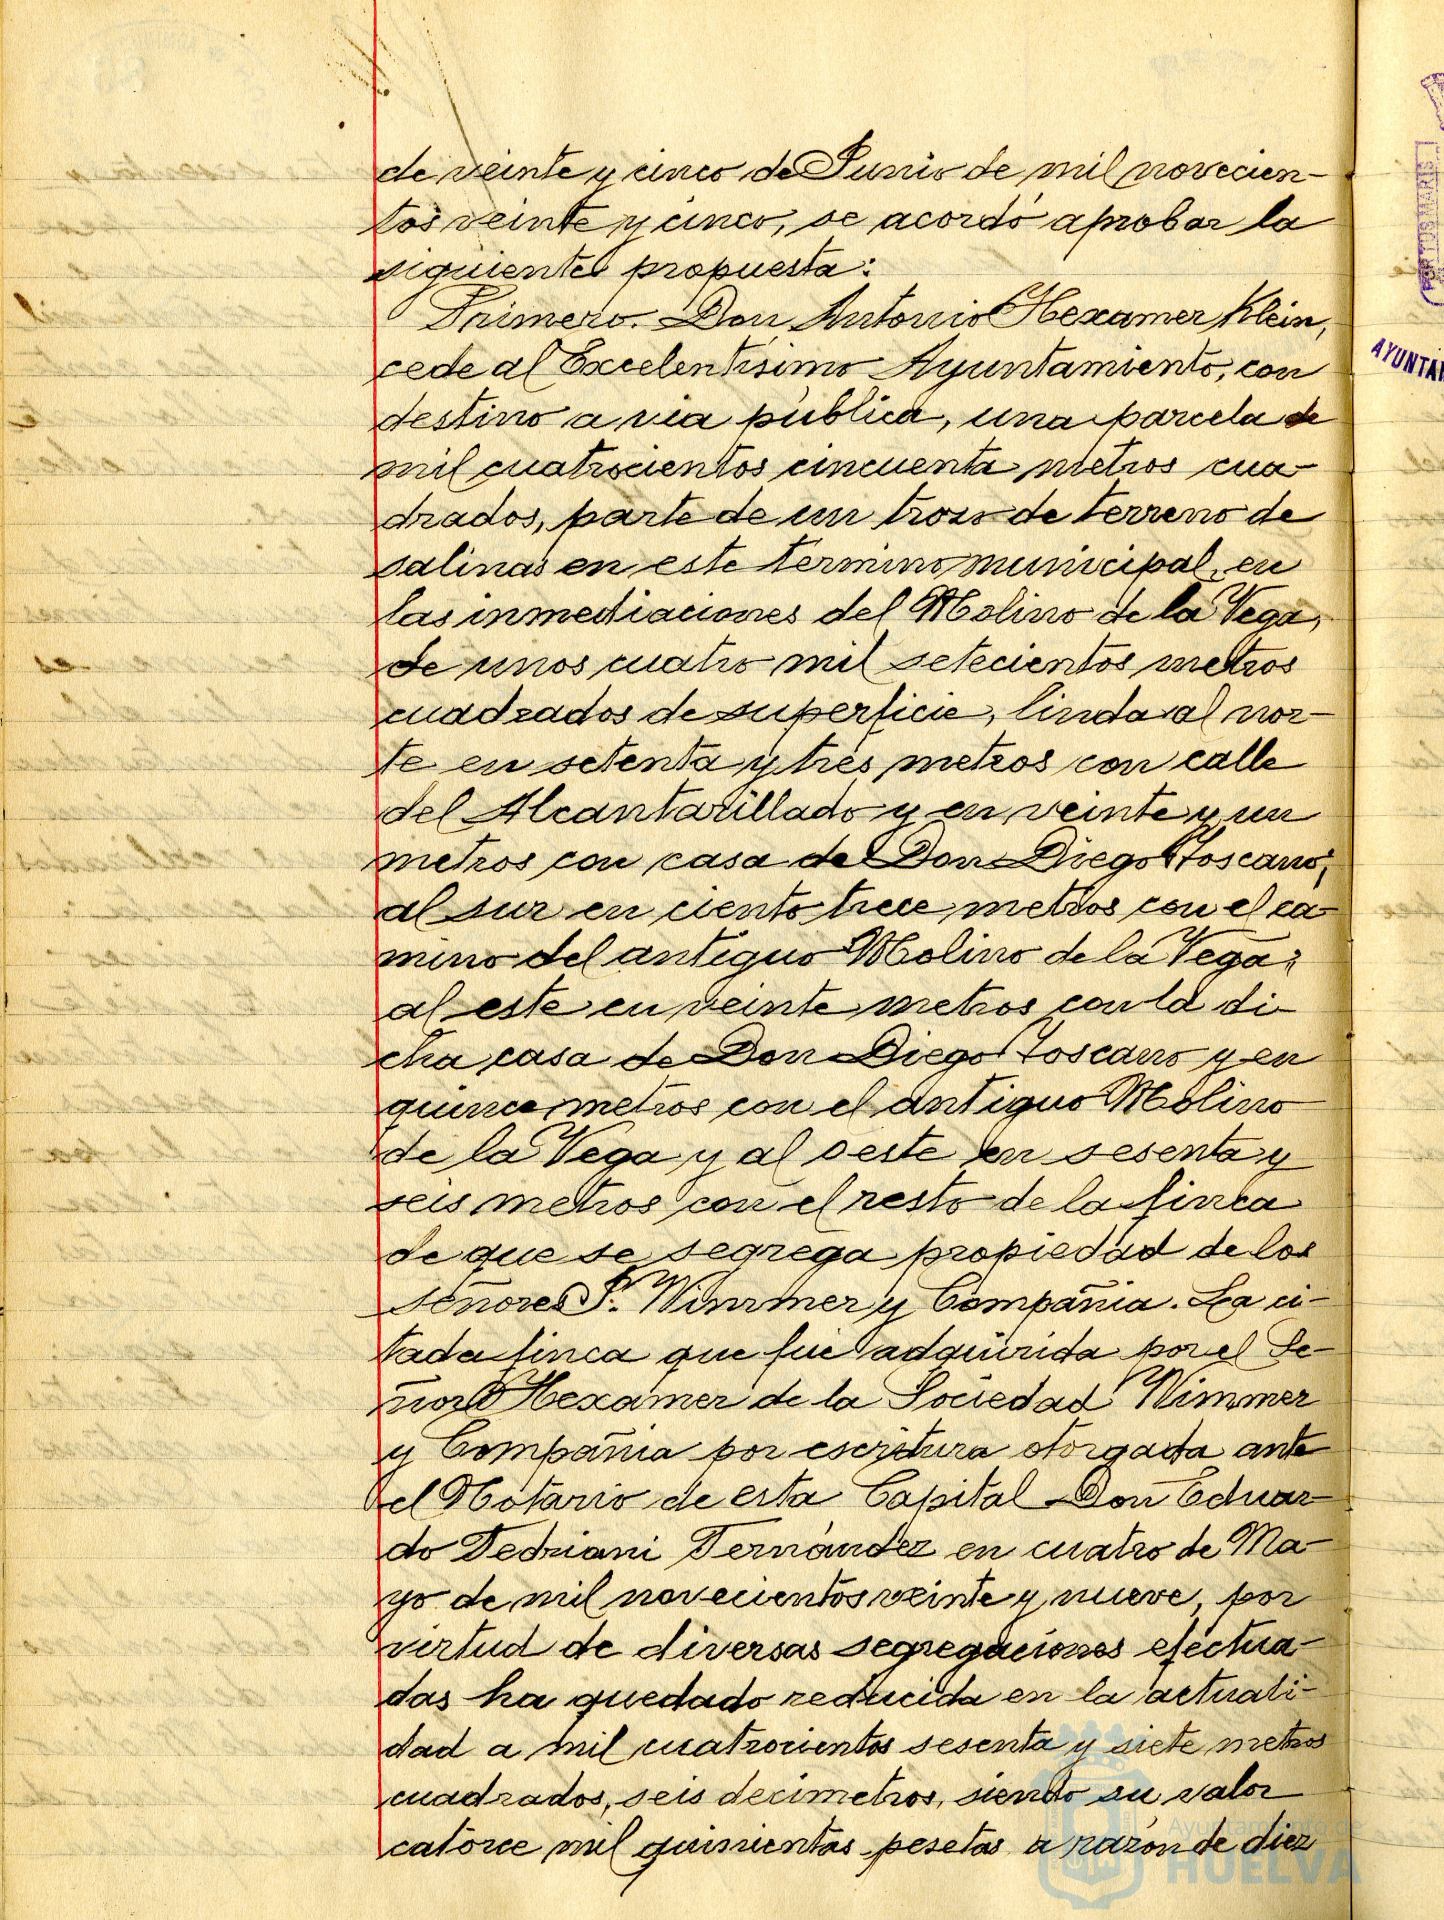 de veinte y cinco de Junio de mil novecien-
tos veinte y cinco, se acordó aprobar la
siguiente propuesta:
Primero. Don Antonio Hexamer Klein,
cede al Excelentísimo Ayuntamiento, con
destino a via pública, una parcela de
mil cuatrocientos cincuenta metros cua-
drados, parte de un trozo de terreno de
salinas en este término municipal, en
las inmediaciones del Molino de la Vega,
de unos cuatro mil setecientos metros
cuadrados de superficie, linda al nor-
te en setenta y tres metros con calle
del Alcantarillado y en veinte y un
metros con casa de Don Diego Toscano;
al sur en ciento trece metros con el ca-
mino del antiguo Molino de la Vega;
al este en veinte metros con la di-
cha casa de Don Diego Toscano y en
quince metros con el antiguo Molino
de la Vega y al oeste en sesenta y
seis metros con el resto de la finca
de que se segrega propiedad de los
señores J. Wimmer y Compañia. La ci-
tada finca que fué adquirida por el Se-
ñor Hexamer de la Sociedad Wimmer
y Compañia por escritura otorgada ante
el Notario de esta Capital Don Eduar-
do Fedriani Fernández en cuatro de Ma-
yo de mil novecientos veinte y nueve, por
virtud de diversas segregaciones efectua-
das ha quedado reducida en la actuali-
dad a mil cuatrocientos sesenta y siete metros
cuadrados, seis decimetros, siendo su valor
catorce mil quinientas pesetas a razón de diez
Ayuntamiento de
HUELVA
PORTUS MARIS
AYUNTAM